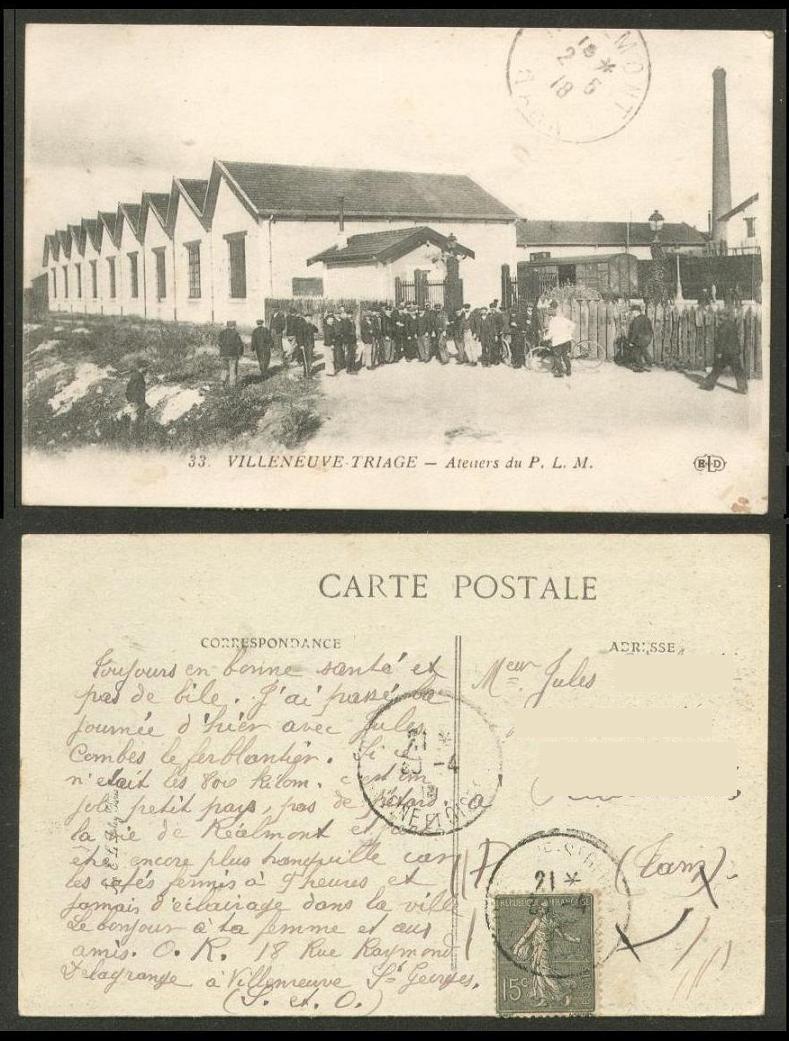 MONT
18 *
2 5
18
33. VILLENEUVE-TRIAGE — Ateliers du P. L. M.
ELD
CARTE POSTALE
CORRESPONDANCE
ADRESSE
Toujours en bonne santé et
pas de bile. J'ai passé la
journée d'hier avec Jules
Combes le ferblantier. Si ce
n'était les 800 kilom. c'est un
joli petit pays, pas de pétard,
la vie de Réalmont et peut
être encore plus tranquille car
les cafés fermés à 9 heures et
jamais d'éclairage dans la ville
Le bonjour à ta femme et aux
amis. O. R. 18 Rue Raymond
Delagrange à Villeneuve St Georges.
(S. et O.)
Meur Jules
à
(Tarn)
21 *
-4
19
NE ET OISE
21 *
REPUBLIQUE FRANÇAISE
15c